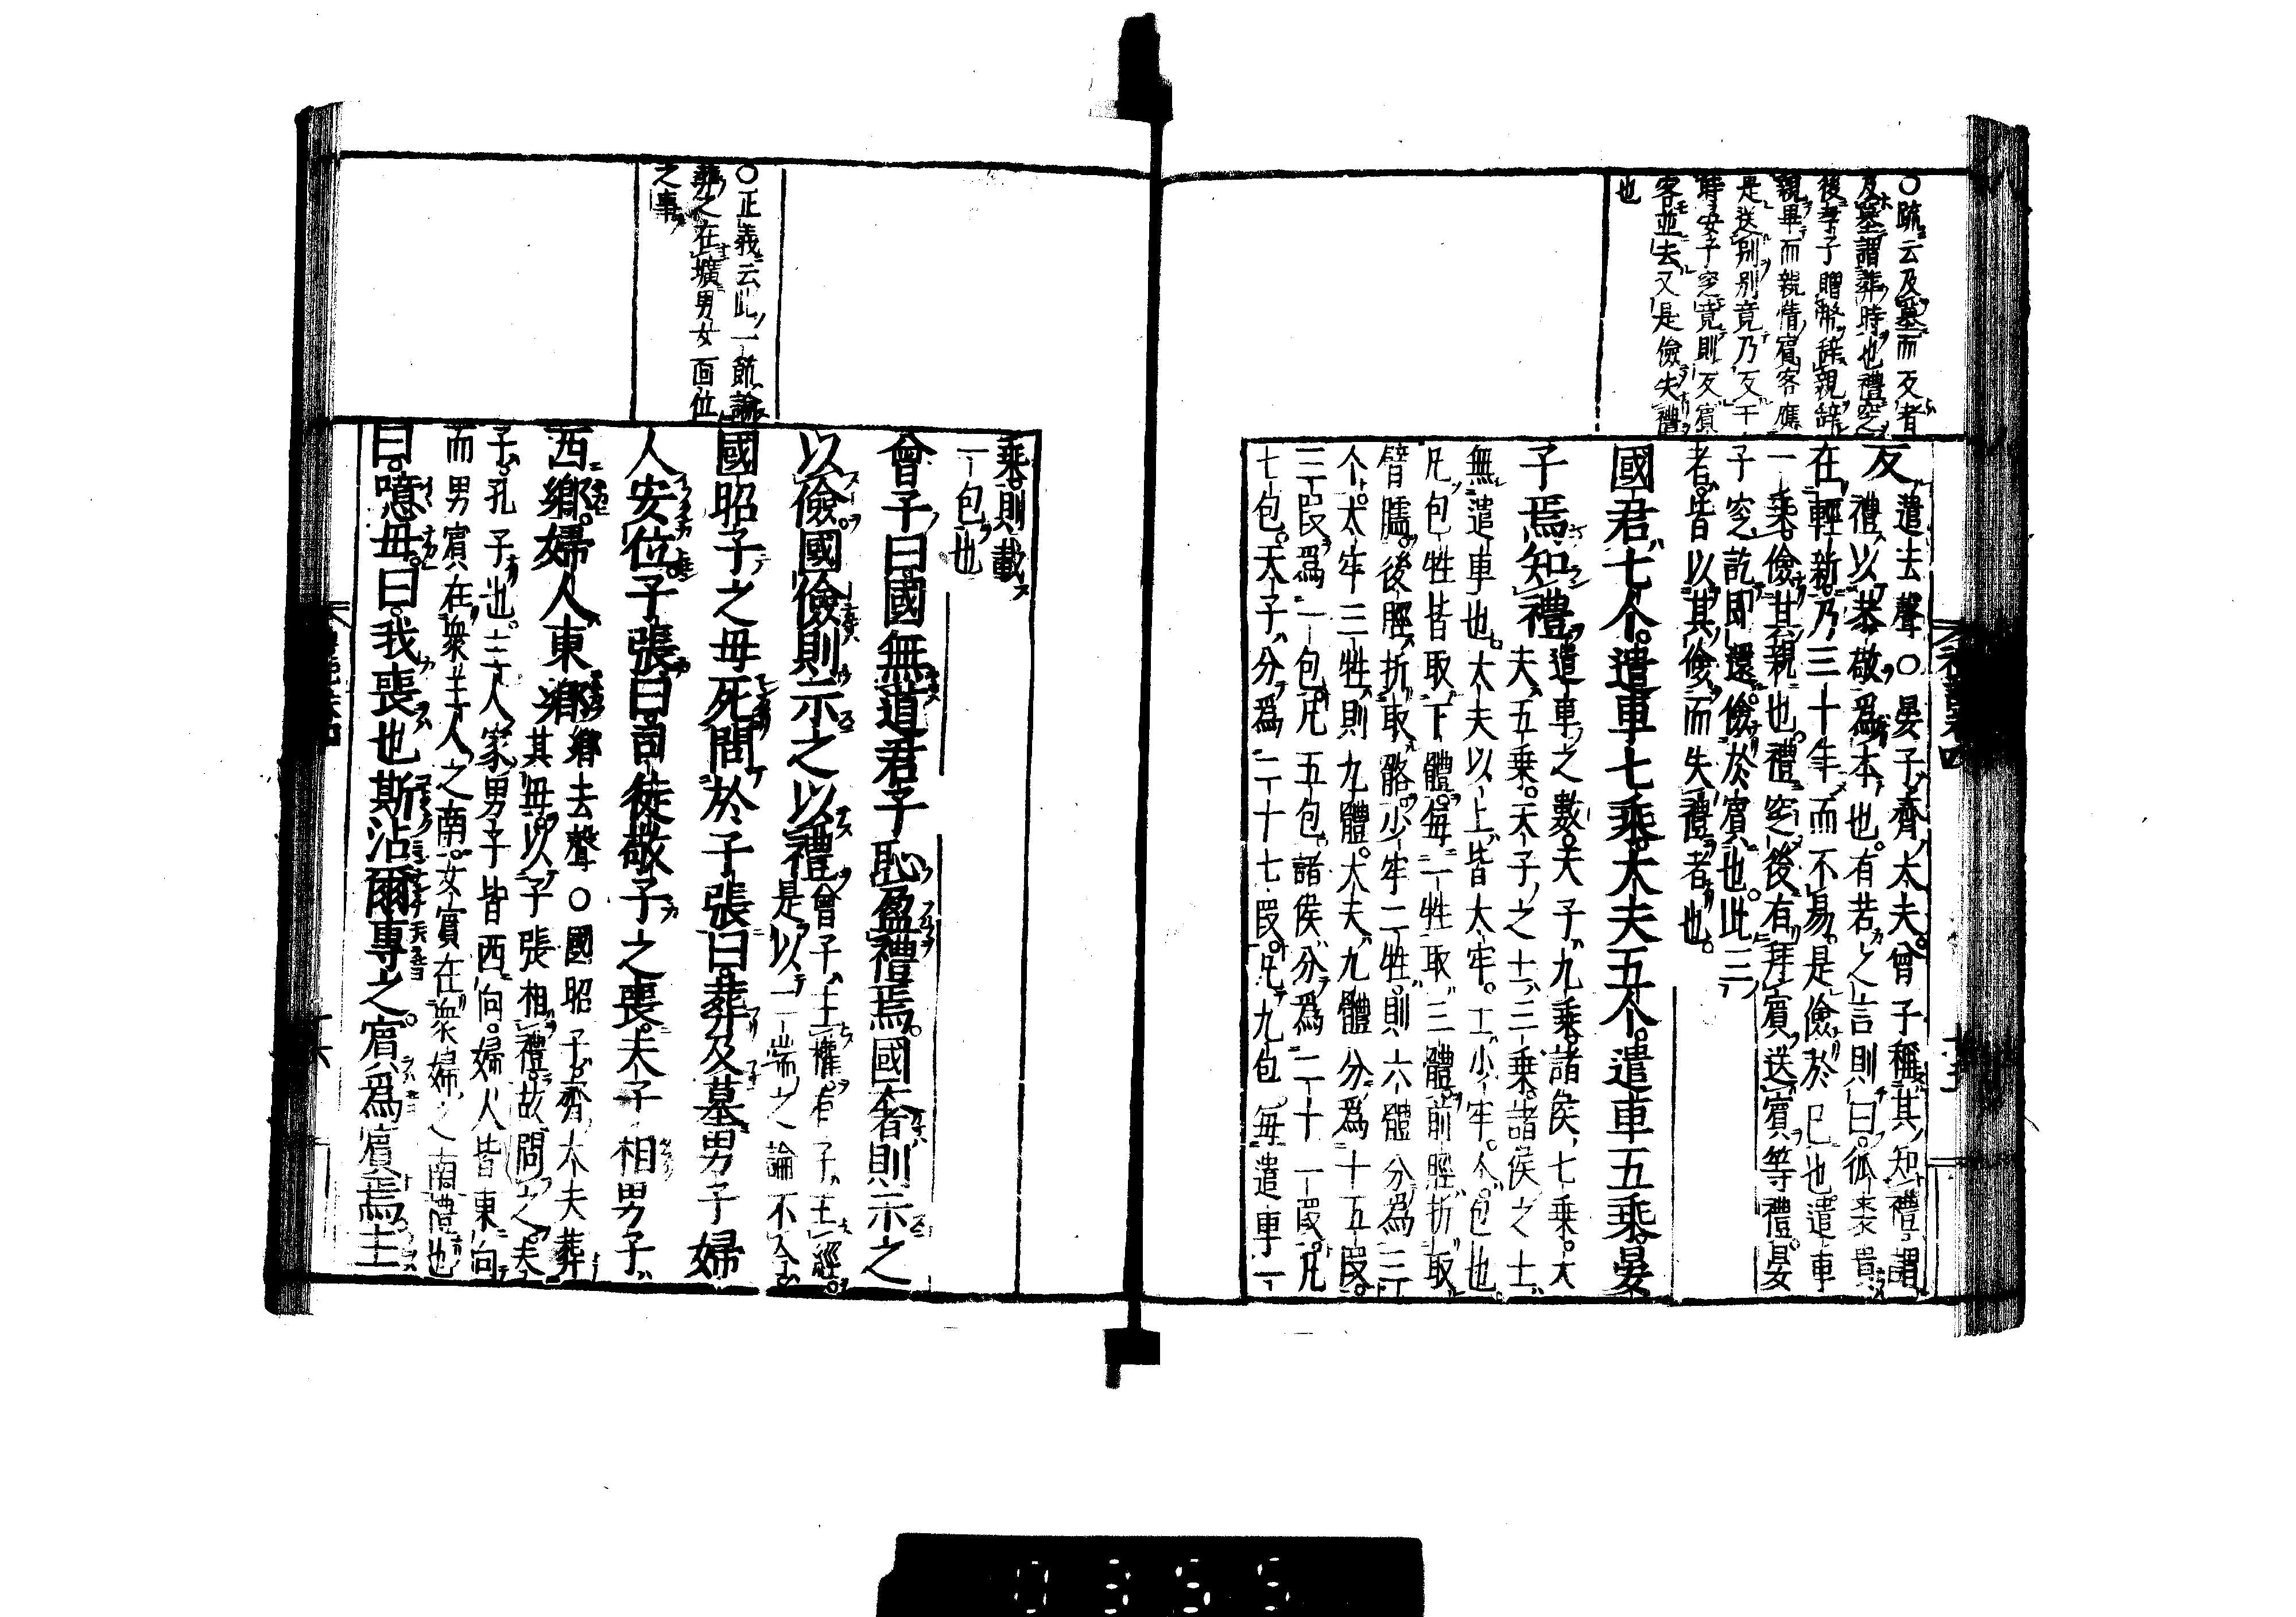 ○疏云及墓而反者
及墓謂葬時也禮窆
後孝子贈幣辞親辞
親畢而親情賓客應
是送別別竟乃反于
時晏子窆竟則反賓
客並去又是儉失禮
也
反遣去聲○晏子齊大夫曾子稱其知禮謂
禮以恭敬爲本也有若之言則曰狐裘貴
在輕新乃三十年而不易是儉於己也遣車
一乘儉其親也禮窆後有拜賓送賓等禮晏
子窆訖即還儉於賓也此三
者皆以其儉而失禮者也
國君七个遣車七乘大夫五个遣車五乘晏
子焉知禮遣車之數天子九乘諸侯七乘大
夫五乘天子之士三乘諸侯之士
無遣車也大夫以上皆大牢士少牢个包也
凡包牲皆取下體每一牲取三體前脛折取
臂臑後脛折取骼少牢二牲則六體分爲三
个大牢三牲則九體大夫九體分爲十五段
三段爲一包凡五包諸侯分爲二十一段凡
七包天子分爲二十七段凡九包每遣車一
禮記卷四
十五
乘則載
一包也
○正義云此一節論
葬之在壙男女面位
之事
曾子曰國無道君子恥盈禮焉國奢則示之
以儉國儉則示之以禮曾子主權有子主經
是以二端之論不合
國昭子之毋死問於子張曰葬及墓男子婦
人安位子張曰司徒敬子之喪夫子相男子
西鄉婦人東鄉鄉去聲○國昭子齊大夫葬
其毋以子張相禮故問之夫
子孔子也主人家男子皆西向婦人皆東向
而男賓在衆主人之南女賓在衆婦之南禮也
曰噫毋曰我喪也斯沾爾專之賓爲賓焉主
十六
0355